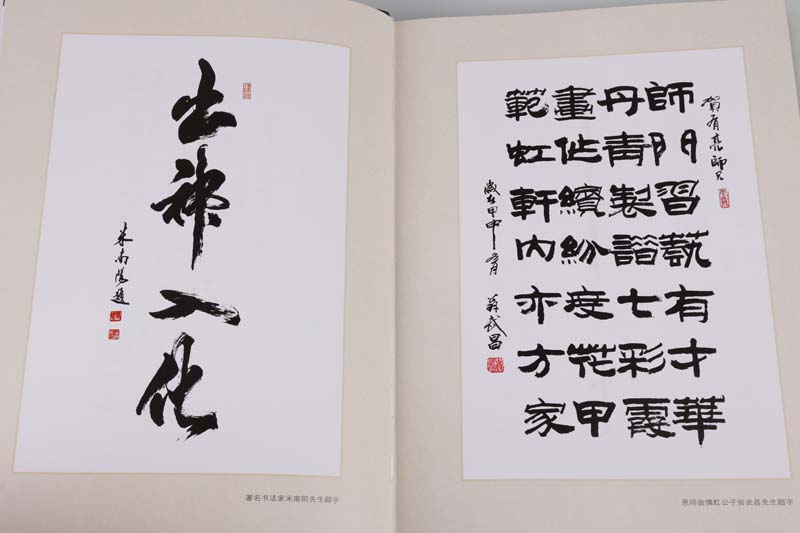 出神入化
米南陽題
著名书法家米南阳先生题字
賀有亮師兄
師門習藝有才華
丹青製譜七彩霞
畫作繽紛度花甲
範虹軒内亦方家
歲在甲申
翁武昌
恩师翁偶虹公子翁武昌先生题字